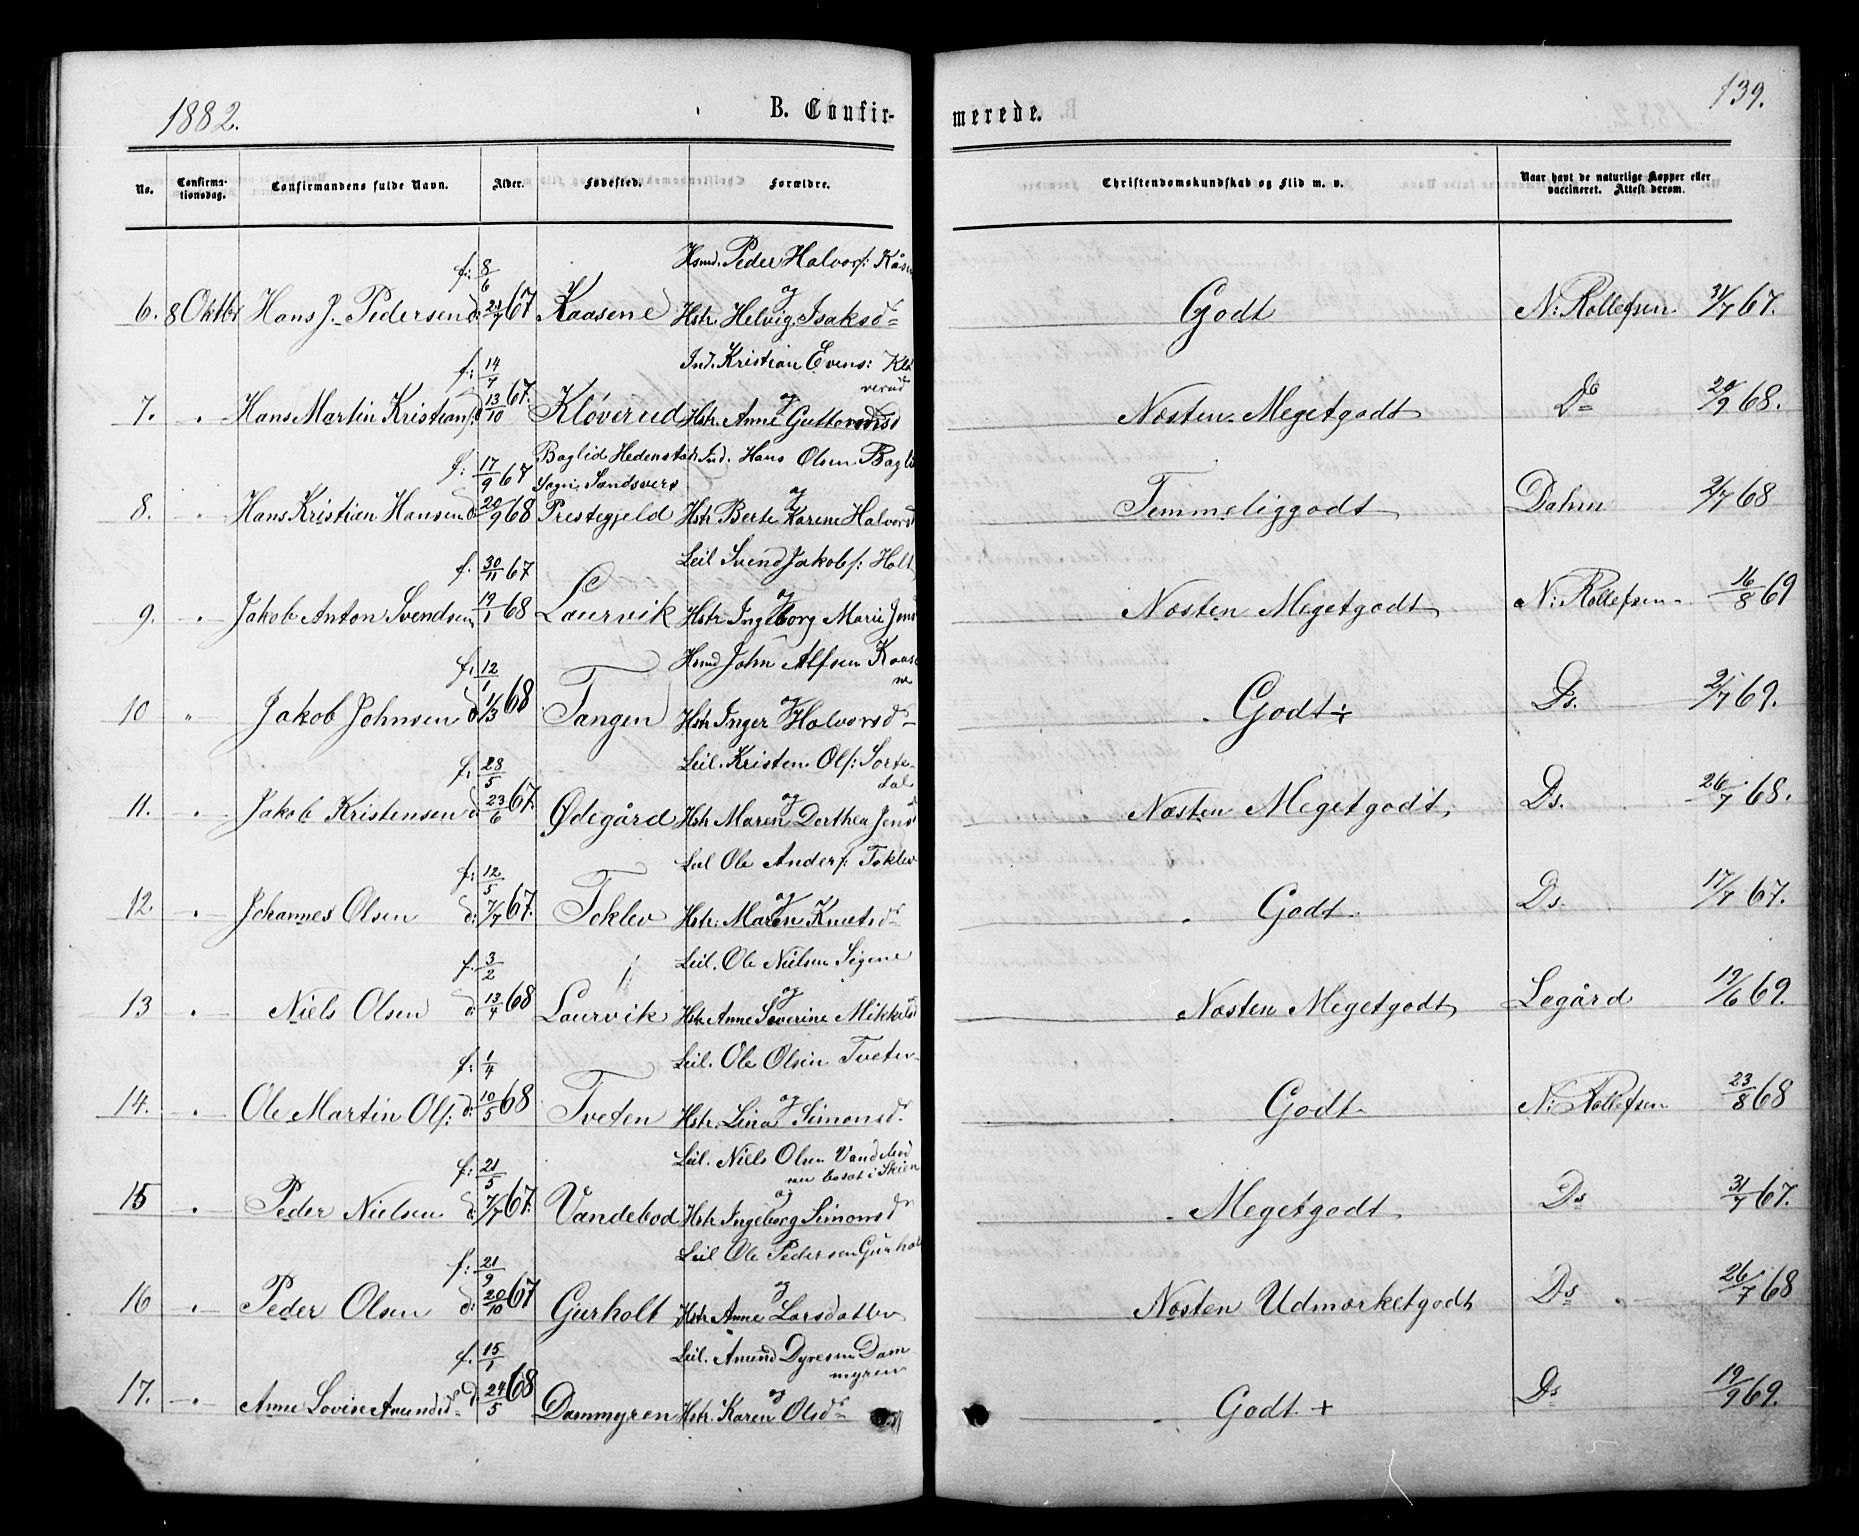 1882.
B. Confir-
merede.
139.
No.
Confirma-
tionsdag.
Confirmandens fulde Navn.
Alder.
Fødested.
Forældre.
Christendomskundskab og Flid m. v.
Naar havt de naturlige Kopper eller
vaccineret. Attest derom.
f: 8/6 Hsmd. Peder Halvors:
6. 8 Oktbr Hans J. Pedersen d: 67 Kaasene og Hstr. Helvig Isaksd= Godt N: Rollefsen 31/7 67.
f: 14/7 Ind. Kristian Evens: Klø
verud
7. " Hans Martin Kristians: d 13/10 67. Kløverud og Hstr. Anne Guttormsd Næsten Megetgodt Do 20/9 68.
f: 17/9 67 Baglid Hedenstad Ind. Hans Olsen Bagli
Sogn, Sandsvers
8. " Hans Kristian Hansen d 20/9 68 Prestegjeld og Hstr Berte Karene Halvorsd Temmeliggodt Dahm 2/7 68
f. 30/11 67 Leil Svend Jakobs: Holt
9. " Jakob Anton Svendsen 19/1 68 Laurvik og Hstr Ingeborg Marie Jens Næsten Megetgodt N: Rollefsen 16/8 69
f. 12/1 Hsmd John Alfsen Kaase
ne
10 " Jakob Johnsen d 1/3 68 Tangen og Hstr Inger Halvorsd= Godt+ Ds. 2/7 69.
f. 28/5 Leil. Kristen Ols: Sorte-
dal
11. " Jakob Kristensen d 23/6 67. Ødegård og Hstr Maren Dorthea Jens Næsten Megetgodt, Ds. 26/7 68.
f: 12/5 Leil Ole Anders: Toklev
12. " Johannes Olsen d: 7/7 67. Toklev og Hstr: Maren Knutsd= Godt Ds. 17/7 67.
f. 3/2 Leil. Ole Nielsen Sigene
13 " Niels Olsen d: 13/4 68 Laurvik og Hstr Anne Severine Mikkels Næsten Megetgodt Legård 19/6 69.
f: 1/4 Leil. Ole Olsen Tveten
14. " Ole Martin Ols: d: 10/5 68 Tveten og Hstr. Lina Simonsd. Godt N: Rollefsen 23/8 68
f: 21/5 Leil. Niels Olsen Vandebod
nu bosat i Skien
15 " Peder Nielsen d: 7/7 67. Vandebod og Hstr Ingeborg Simonsd Megetgodt Ds 31/7 67.
f: 21/9 Leil Ole Pedersen Gurhol
16 " Peder Olsen d: 20/10 67 Gurholt og Hstr Anne Larsdatter Næsten Udmærketgodt Ds 26/7 68
f. 15/1 Leil. Amund Dyresen Dam
myren
17. " Anne Lovise Amundsd= d. 24/5 68 Dammyren og Hstr Karen Olsd= Godt + Ds 19/9 69.